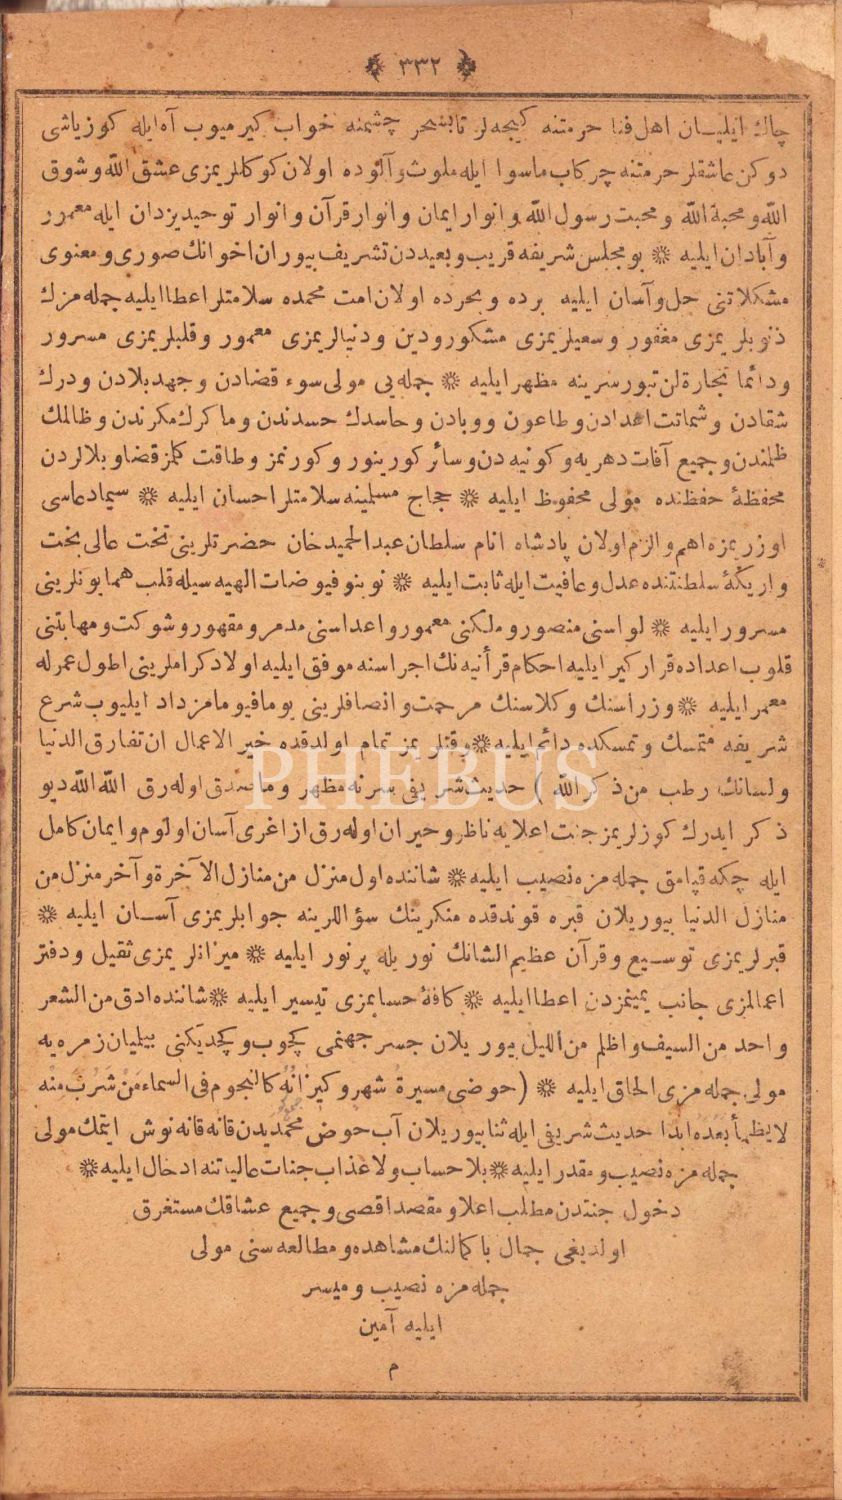 ٣٣٢
چاك ايليـان اهل فنا حرمتنه كيجه لر تا بسحر چشمنه خواب كيرميوب آه ايله كوزياشى
دوكن عاشقلر حرمتنه چركاب ماسوا ايله ملوث وآلوده اولان كوكللريمزى عشق الله وشوق
الله ومحبة الله ومحبت رسول الله وانوار ايمان وانوار قرآن وانوار توحيد يزدان ايله معمور
وآبادان ايليه ❊ بو مجلس شريفه قريب وبعيددن تشريف بيوران اخوانك صورى ومعنوى
مشكلاتنى حل وآسان ايليه برده وبحرده اولان امت محمده سلامتلر اعطا ايليه جمله مزك
ذنوبلريمزى مغفور وسعيلريمزى مشكور ودين ودنيالريمزى معمور وقلبلريمزى مسرور
ودائما تجارة لن تبور سرينه مظهر ايليه ❊ جمله يى مولى سوء قضادن وجهد بلادن ودرك
شقادن وشماتت اعدادن وطاعون ووبادن وحاسدك حسدندن وماكرك مكرندن وظالمك
ظلمندن وجميع آفات دهريه وكونيه دن وسائر كورينور وكورنمز وطاقت كلمز قضا وبلالردن
محفظۀ حفظنده مولى محفوظ ايليه ❊ حجاج مسلمينه سلامتلر احسان ايليه ❊ سيما دعاسى
اوزريمزه اهم والزم اولان پادشاه انام سلطان عبدالحميد خان حضرتلرينى تخت عالى بخت
واريكۀ سلطنتنده عدل وعافيت ايله ثابت ايليه ❊ نوبنو فيوضات الهيه سيله قلب همايونلرينى
مسرور ايليه ❊ لواسنى منصور وملكنى معمور واعداسنى مدمر ومقهور وشوكت ومهابتنى
قلوب اعداده قراركير ايليه احكام قرأنيه نك اجراسنه موفق ايليه اولاد كراملرينى اطول عمرله
معمر ايليه ❊ وزراسنك وكلاسنك مرحمت وانصافلرينى يوما فيوما مزداد ايليوب شرع
شريفه متمسك وتمسكده دائم ايليه ❊ وقتلريمز تمام اولدقده خير الاعمال ان تفارق الدنيا
ولسانك رطب من ذكر الله ) حديث شريفى سرنه مظهر وماصدق اوله رق الله الله ديو
ذكر ايدرك كوزلريمز جنت اعلايه ناظر وحيران اوله رق از اغرى آسان اولوم وايمان كامل
ايله چكه قپامق جمله مزه نصيب ايليه ❊ شاننده اول منزل من منازل الآخرة وآخر منزل من
منازل الدنيا بيوريلان قبره قوندقده منكرينك سؤاللرينه جوابلريمزى آسـان ايليه ❊
قبرلريمزى توسـيع وقرآن عظيم الشانك نوريله پرنور ايليه ❊ ميزانلريمزى ثقيل ودفتر
اعمالمزى جانب يمينمزدن اعطا ايليه ❊ كافۀ حسابمزى تيسير ايليه ❊ شاننده ادق من الشعر
واحد من السيف واظلم من الليل بيوريلان جسر جهنمى كچوب وكچديكنى بيلميان زمره يه
مولى جمله مزى الحاق ايليه ❊ ( حوضى مسيرة شهر وكيزانه كالنجوم فى السماء من شرب منه
لايظمأ بعده ابدا حديث شريفى ايله ثنا بيوريلان آب حوض محمديدن قانه قانه نوش ايتمك مولى
جمله مزه نصيب ومقدر ايليه ❊ بلا حساب ولا عذاب جنات عالياتنه ادخال ايليه ❊
دخول جنتدن مطلب اعلا ومقصد اقصى وجميع عشاقك مستغرق
اولديغى جمال باكمالنك مشاهده ومطالعه سنى مولى
جمله مزه نصيب وميسر
ايليه آمين
م
PHEBUS